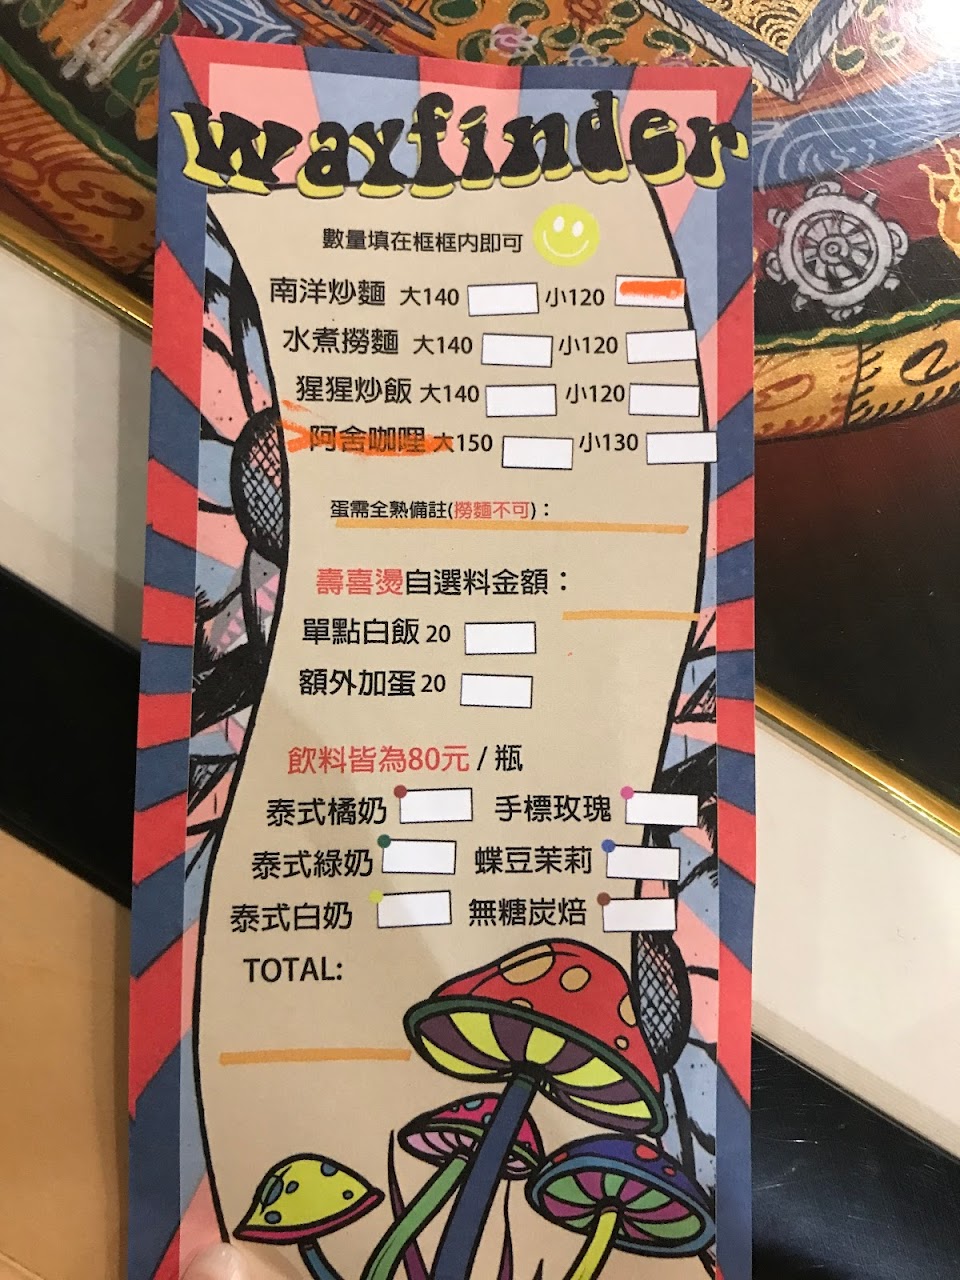 Wayfinder
數量填在框框内即可
南洋炒麵 大140 小120
水煮撈麵 大140 小120
猩猩炒飯 大140 小120
阿舍咖哩 大150 小130
蛋需全熟備註(撈麵不可)：
壽喜燙自選料金額：
單點白飯 20
額外加蛋 20
飲料皆為80元 / 瓶
泰式橘奶 手標玫瑰
泰式綠奶 蝶豆茉莉
泰式白奶 無糖炭焙
TOTAL: